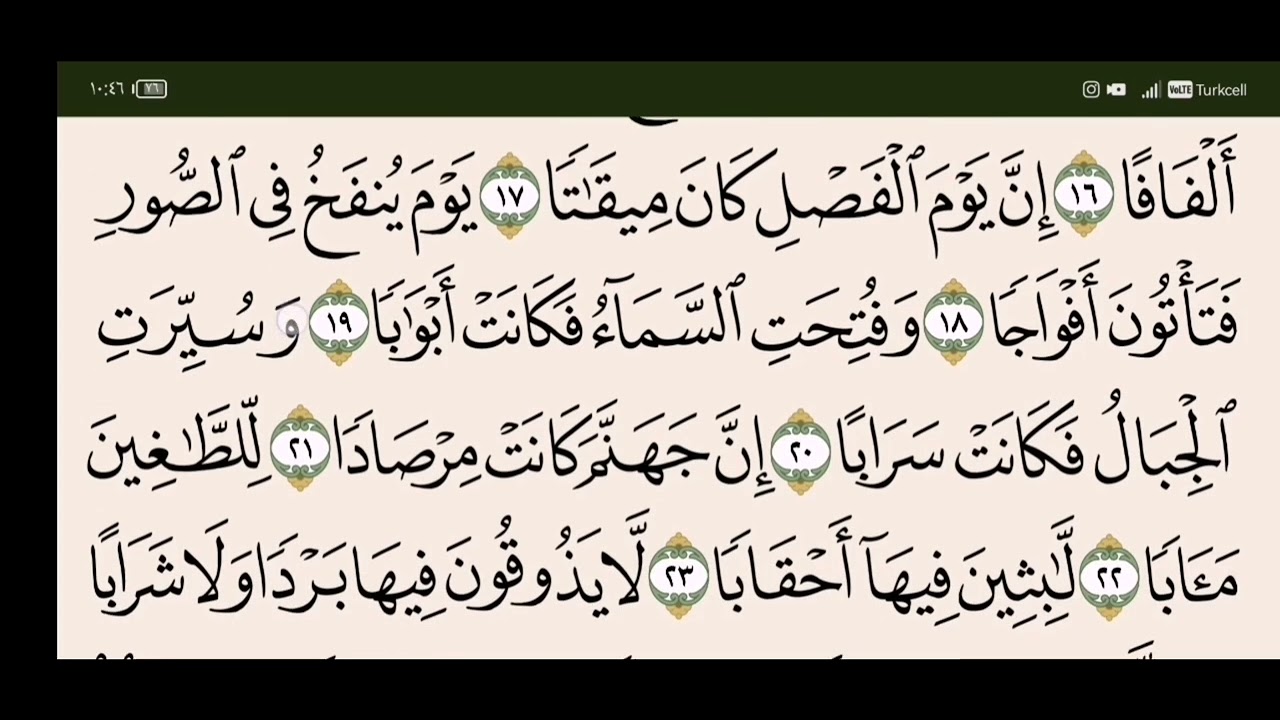 ١٠:٤٦ ٧٦ VoLTE Turkcell
أَلۡفَافًا ١٦ إِنَّ يَوۡمَ ٱلۡفَصۡلِ كَانَ مِيقَٰتٗا ١٧ يَوۡمَ يُنفَخُ فِي ٱلصُّورِ
فَتَأۡتُونَ أَفۡوَاجٗا ١٨ وَفُتِحَتِ ٱلسَّمَآءُ فَكَانَتۡ أَبۡوَٰبٗا ١٩ وَسُيِّرَتِ
ٱلۡجِبَالُ فَكَانَتۡ سَرَابًا ٢٠ إِنَّ جَهَنَّمَ كَانَتۡ مِرۡصَادٗا ٢١ لِّلطَّٰغِينَ
مَـَٔابٗا ٢٢ لَّٰبِثِينَ فِيهَآ أَحۡقَابٗا ٢٣ لَّا يَذُوقُونَ فِيهَا بَرۡدٗا وَلَا شَرَابًا